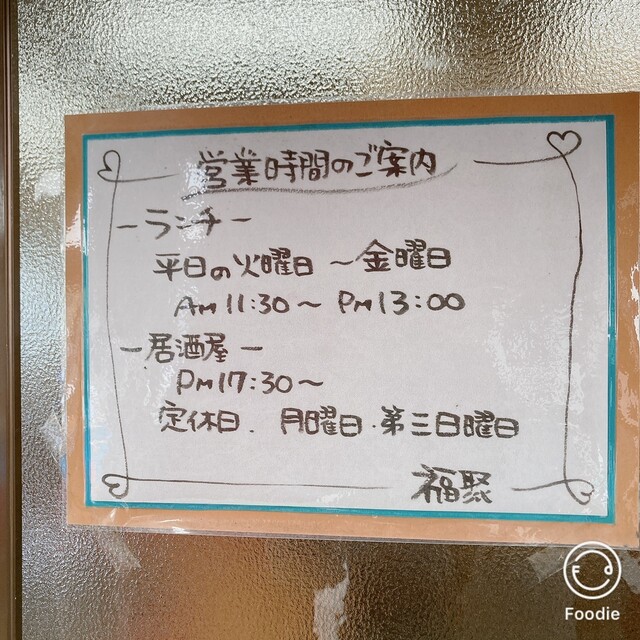 営業時間のご案内
－ランチ－
平日の火曜日～金曜日
AM11:30～PM13:00
－居酒屋－
PM17:30～
定休日．月曜日・第三日曜日
福聚
Foodie